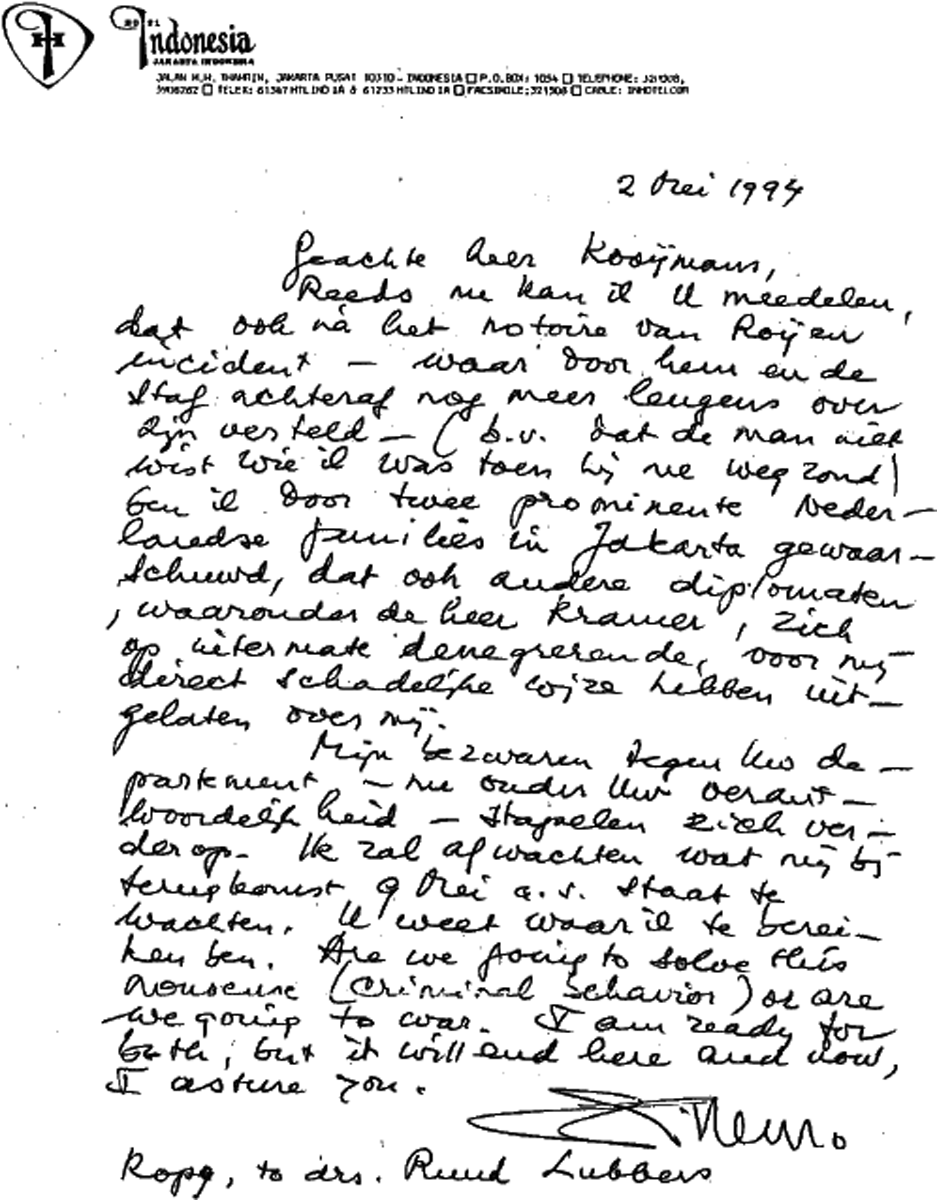 HOTEL
Indonesia
JAKARTA INDONESIA
JALAN M.H. THAMRIN, JAKARTA PUSAT 10310 - INDONESIA □ P.O. BOX: 1054 □ TELEPHONE: 321908,
3906262 □ TELEX: 61347 HTLIND IA & 61233 HTLIND IA □ FACSIMILE: 321508 □ CABLE: INHOTELCOR
2 Mei 1994
Geachte heer Kooijmans,
Reeds nu kan ik U meedelen,
dat ook nà het notoire van Roijen
incident – waar door hem en de
staf achteraf nog meer leugens over
zijn verteld – ( b.v. dat de man niet
wist wie ik was toen hij me weg zond)
ben ik door twee prominente Neder-
landse families in Jakarta gewaar-
schuwd, dat ook andere diplomaten
, waaronder de heer Kramer, zich
op uitermate denegrerende, voor mij
direct schadelijke wijze hebben uit-
gelaten over mij.
Mijn bezwaren tegen Uw de-
partement – nu onder Uw verant-
woordelijkheid – stapelen zich ver-
der op. Ik zal afwachten wat mij bij
terugkomst 9 Mei a.s. staat te
wachten. U weet waar ik te berei-
ken ben. Are we going to solve this
nonsense (criminal behavior) or are
we going to war. I am ready for
both, but it will end here and now,
I assure you.
Kopy, to drs. Ruud Lubbers